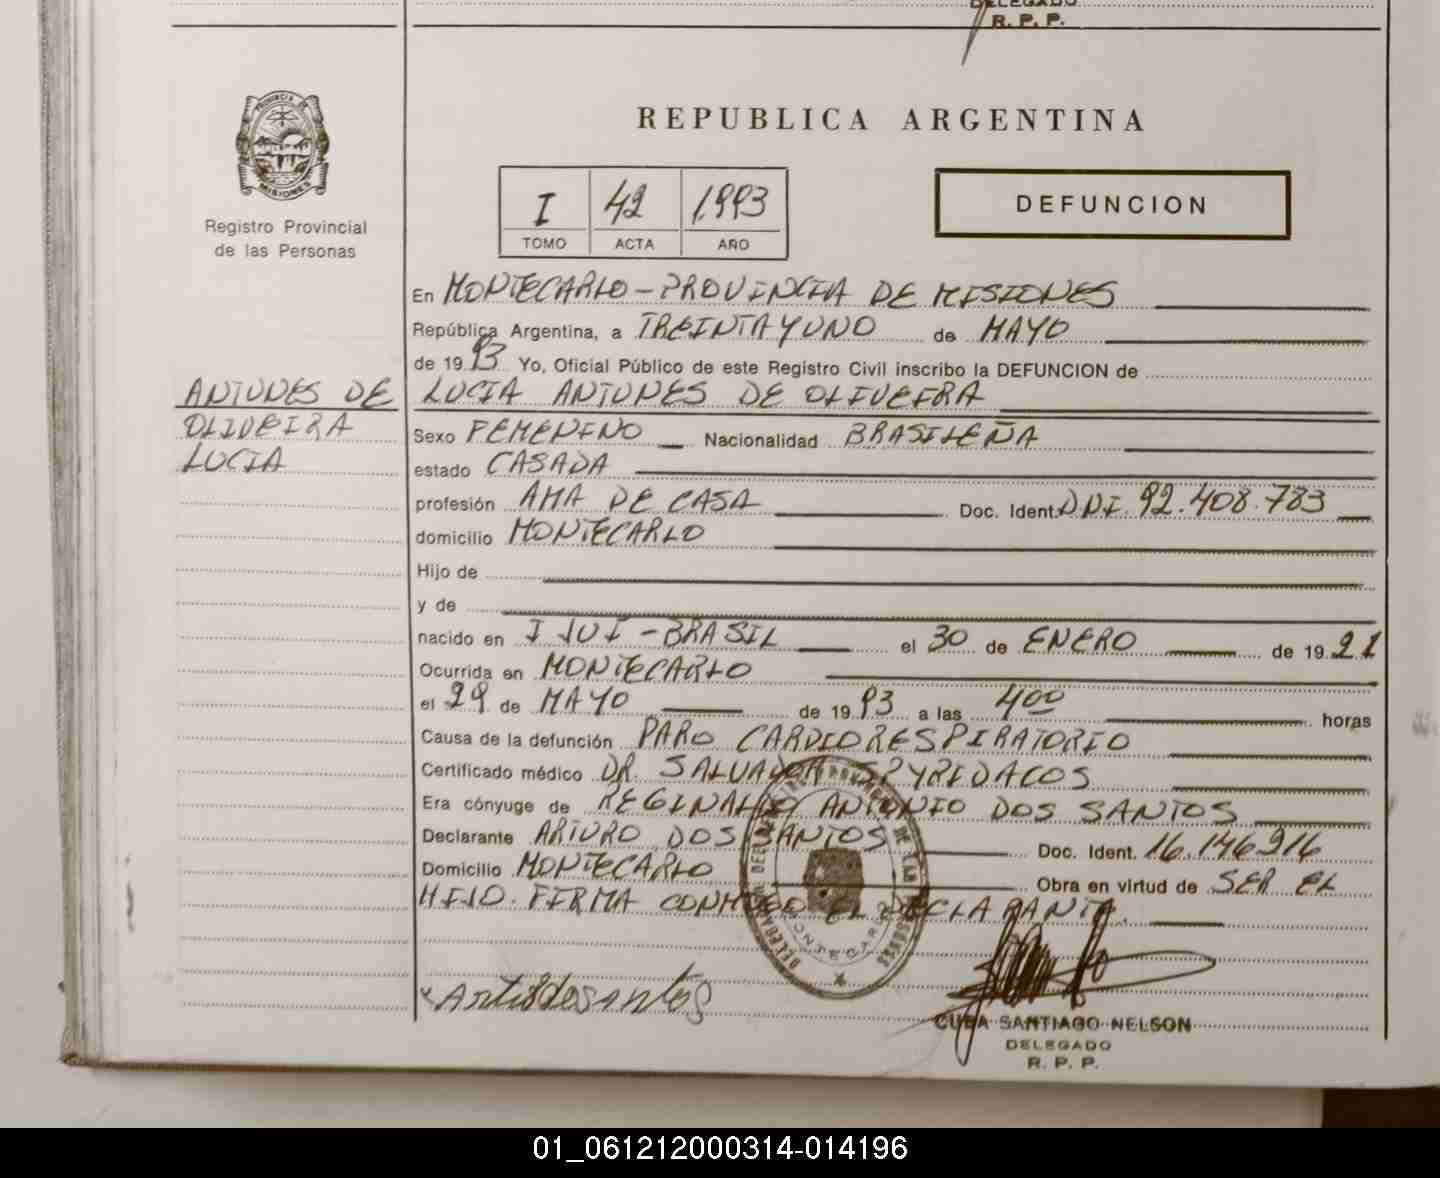 DELEGADO
R. P. P.
PROVINCIA DE
MISIONES
Registro Provincial
de las Personas
REPUBLICA ARGENTINA
I 42 1993
TOMO ACTA AÑO
DEFUNCION
En MONTECARLO - PROVINCIA DE MISIONES
República Argentina, a TREINTA Y UNO de MAYO
de 19 93 Yo, Oficial Público de este Registro Civil inscribo la DEFUNCION de
ANTUNES DE
OLIVEIRA
LUCIA
LUCIA ANTUNES DE OLIVEIRA
Sexo FEMENINO Nacionalidad BRASILEÑA
estado CASADA
profesión AMA DE CASA Doc. Ident. DNI. 92.408.783
domicilio MONTECARLO
Hijo de
y de
nacido en IJUI - BRASIL el 30 de ENERO de 19 21
Ocurrida en MONTECARLO
el 29 de MAYO de 19 93 a las 4 00 horas
Causa de la defunción PARO CARDIORESPIRATORIO
Certificado médico DR. SALVADOR SPYRIDACOS
Era cónyuge de REGINALDO ANTONIO DOS SANTOS
Declarante ARTURO DOS SANTOS Doc. Ident. 16.146.916
Domicilio MONTECARLO Obra en virtud de SER EL
HIJO. FIRMA CONMIGO EL DECLARANTE.
MONTECARLO
CUBA SANTIAGO NELSON
DELEGADO
R. P. P.
01_061212000314-014196